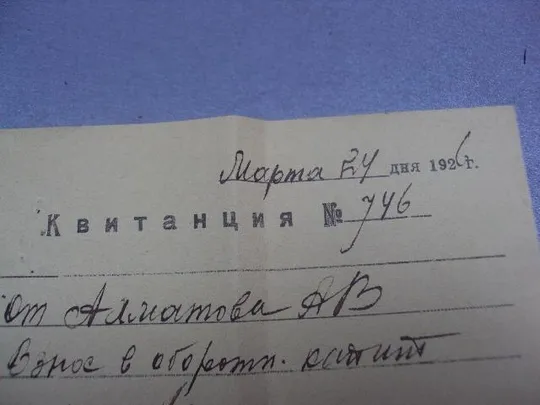 Марта 24 дня 1926 г.
Квитанция № 746
От Алматова АВ
Взнос в оборотн. капит